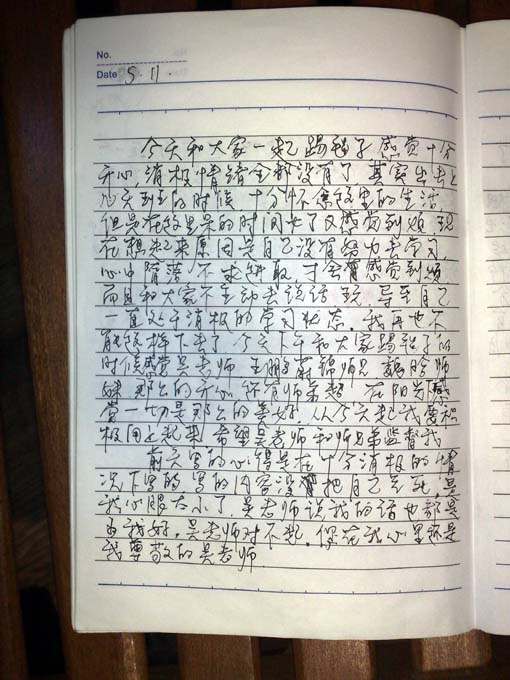 No.
Date 5.11.
今天和大家一起踢毽子感觉十分
开心,消极情绪全都没有了 其实出去上
几天到的时候 十分怀念这里的生活
但是在这里呆的时间长了又感觉到烦 现
在想起来原因是自己没有努力去学习
心中 不求进取 才会感觉到烦
而且和大家不主动去说话 导至自己
一直处于消极的学习状态. 我再也不
能这样下去了 今天下午和大家踢毽子的
时候感觉吴老师 王鹏 师兄 师
妹 那么的开心 在阳光下感
觉一切是那么的美好. 从今天起我要积
极向上起来 希望吴老师和师兄弟监督我
前天写的心得是在十分消极的情
况下写的 写的内容没有把自己 是
我心眼太小了 吴老师说我的话也都是
为我好. 吴老师对不起. 您在我心里还是
我尊敬的吴老师